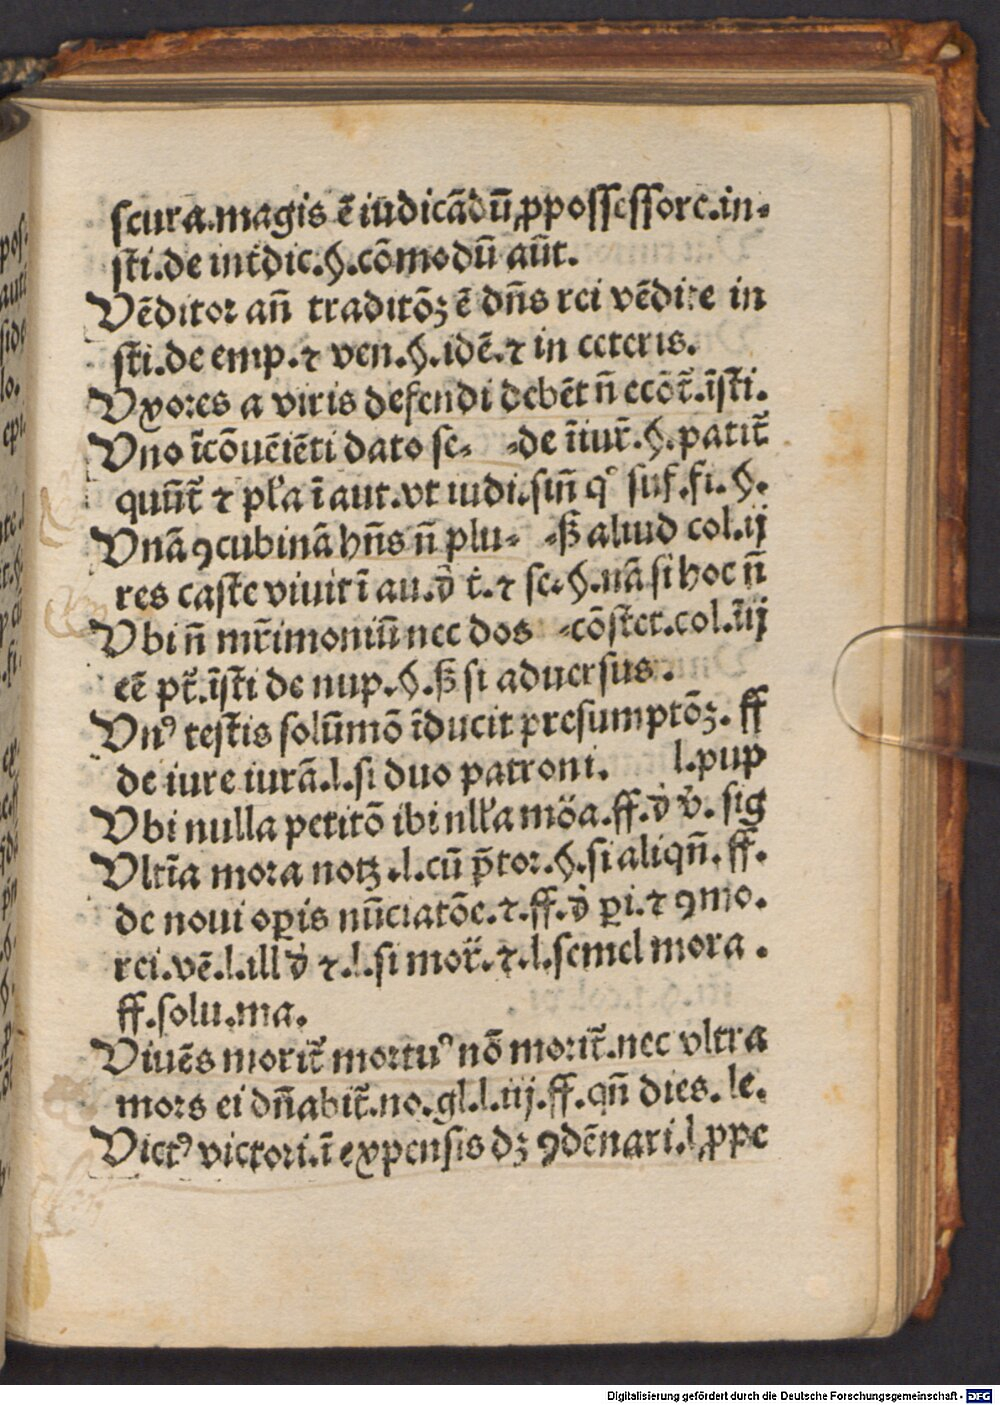 scura.magis ē iudicādū ꝓ possessore.in⸗
sti.de int̄dic.§.cōmodū aūt.
Vēditor an̄ traditōꝫ ē dn̄s rei vēdite in
sti.de emp.⁊ ven.§.idē.⁊ in ceteris.
Vxores a viris defendi debēt n̄ ecōt̄.īsti.
Vno īcōueīēti dato se⸗ ⸗de īiur̄.§.patit̄
quūt̄ ⁊ pl̄a ī aut.vt iudi.sin̄ qͦ suf.fi.§.
Vnā ꝯcubinā hn̄s n̄ plu⸗ ⸗ß aliud col.ij
res caste viuit ī au.d̄ t̄.⁊ se.§.nā si hoc n̄
Vbi n̄ mr̄imoniū nec dos ⸗cōstet.col.iij
eē pt̄.īsti de nup.§.ß si aduersus.
Vnꝰ testis solūmō īducit presumptōꝫ.ff
de iure iurā.l.si duo patroni. l.pup
Vbi nulla petitō ibi nll̄a mōa.ff.d̄ v̄.sig
Vltīa mora notꝫ.l.cū p̄tor.§.si aliqn̄.ff.
de noui oꝑis nūciatōe.⁊.ff.d̄ ꝑi.⁊ ꝯmo.
rei.vē.l.ill d̄ ⁊.l.si mor̄.⁊.l.semel mora.
ff.solu.ma.
Viuēs morit̄ mortuꝰ nō morit̄.nec vltra
mors ei dn̄abit̄.no.gl.l.iij.ff.qn̄ dies.le.
Victꝰ victori.ī expensis dꝫ ꝯdēnari.l.ꝓpe
Digitalisierung gefördert durch die Deutsche Forschungsgemeinschaft - DFG